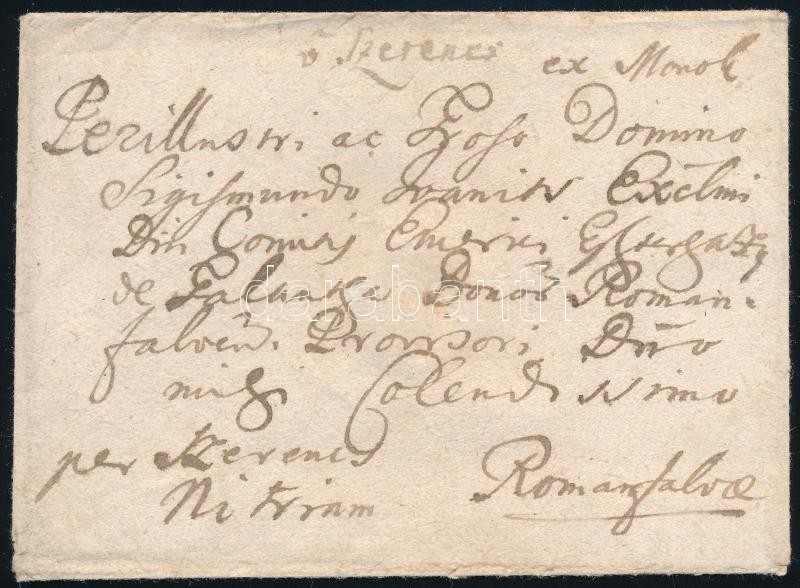 v Szerencs ex Monok
Perillustri ac Groso Domino
Sigismundo Ivanits Excelmi
Dni Comitis Emerici Eszterhazy
de Galantha Bonor Roman=
falven. Provisori Dno
mihi Colendissimo
per Szerencs
Nitriam Romanfalvæ
darabanth